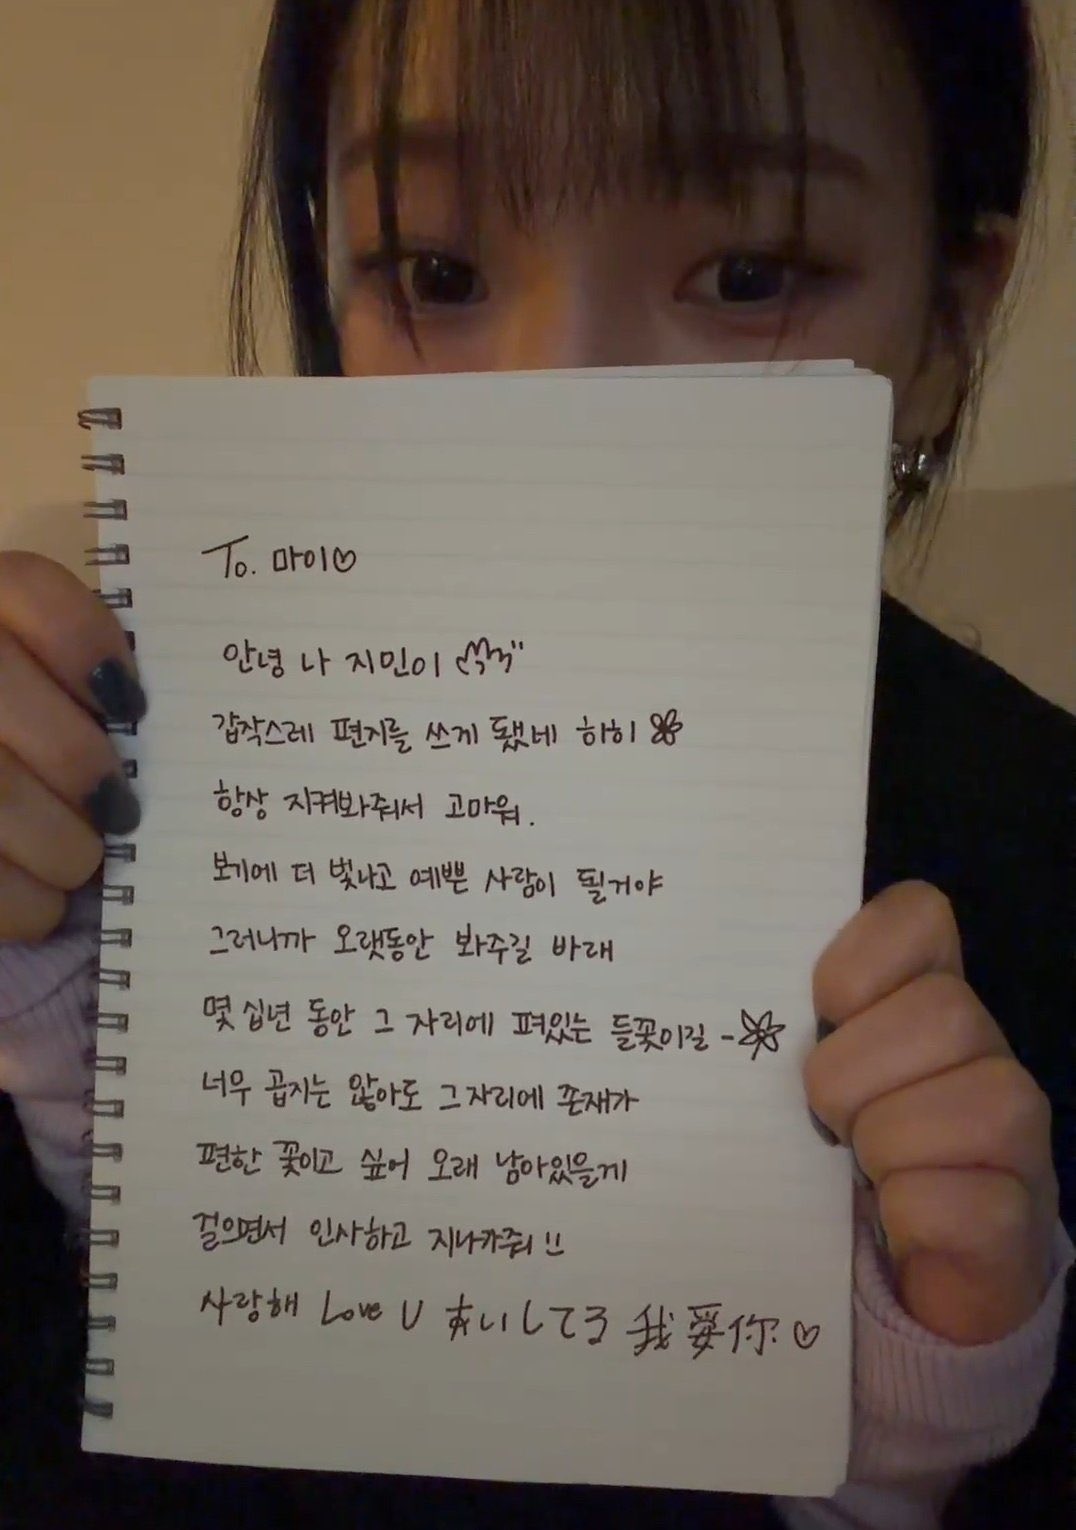 To. 마이♡
안녕 나 지민이
갑작스레 편지를 쓰게 됐네 히히
항상 지켜봐줘서 고마워.
보기에 더 빛나고 예쁜 사람이 될거야
그러니까 오랫동안 봐주길 바래
몇 십년 동안 그 자리에 펴있는 들꽃이길 -
너무 곱지는 않아도 그 자리에 존재가
편한 꽃이고 싶어 오래 남아있을게
걸으면서 인사하고 지나가줘!!
사랑해 Love U あいしてる 我爱你♡